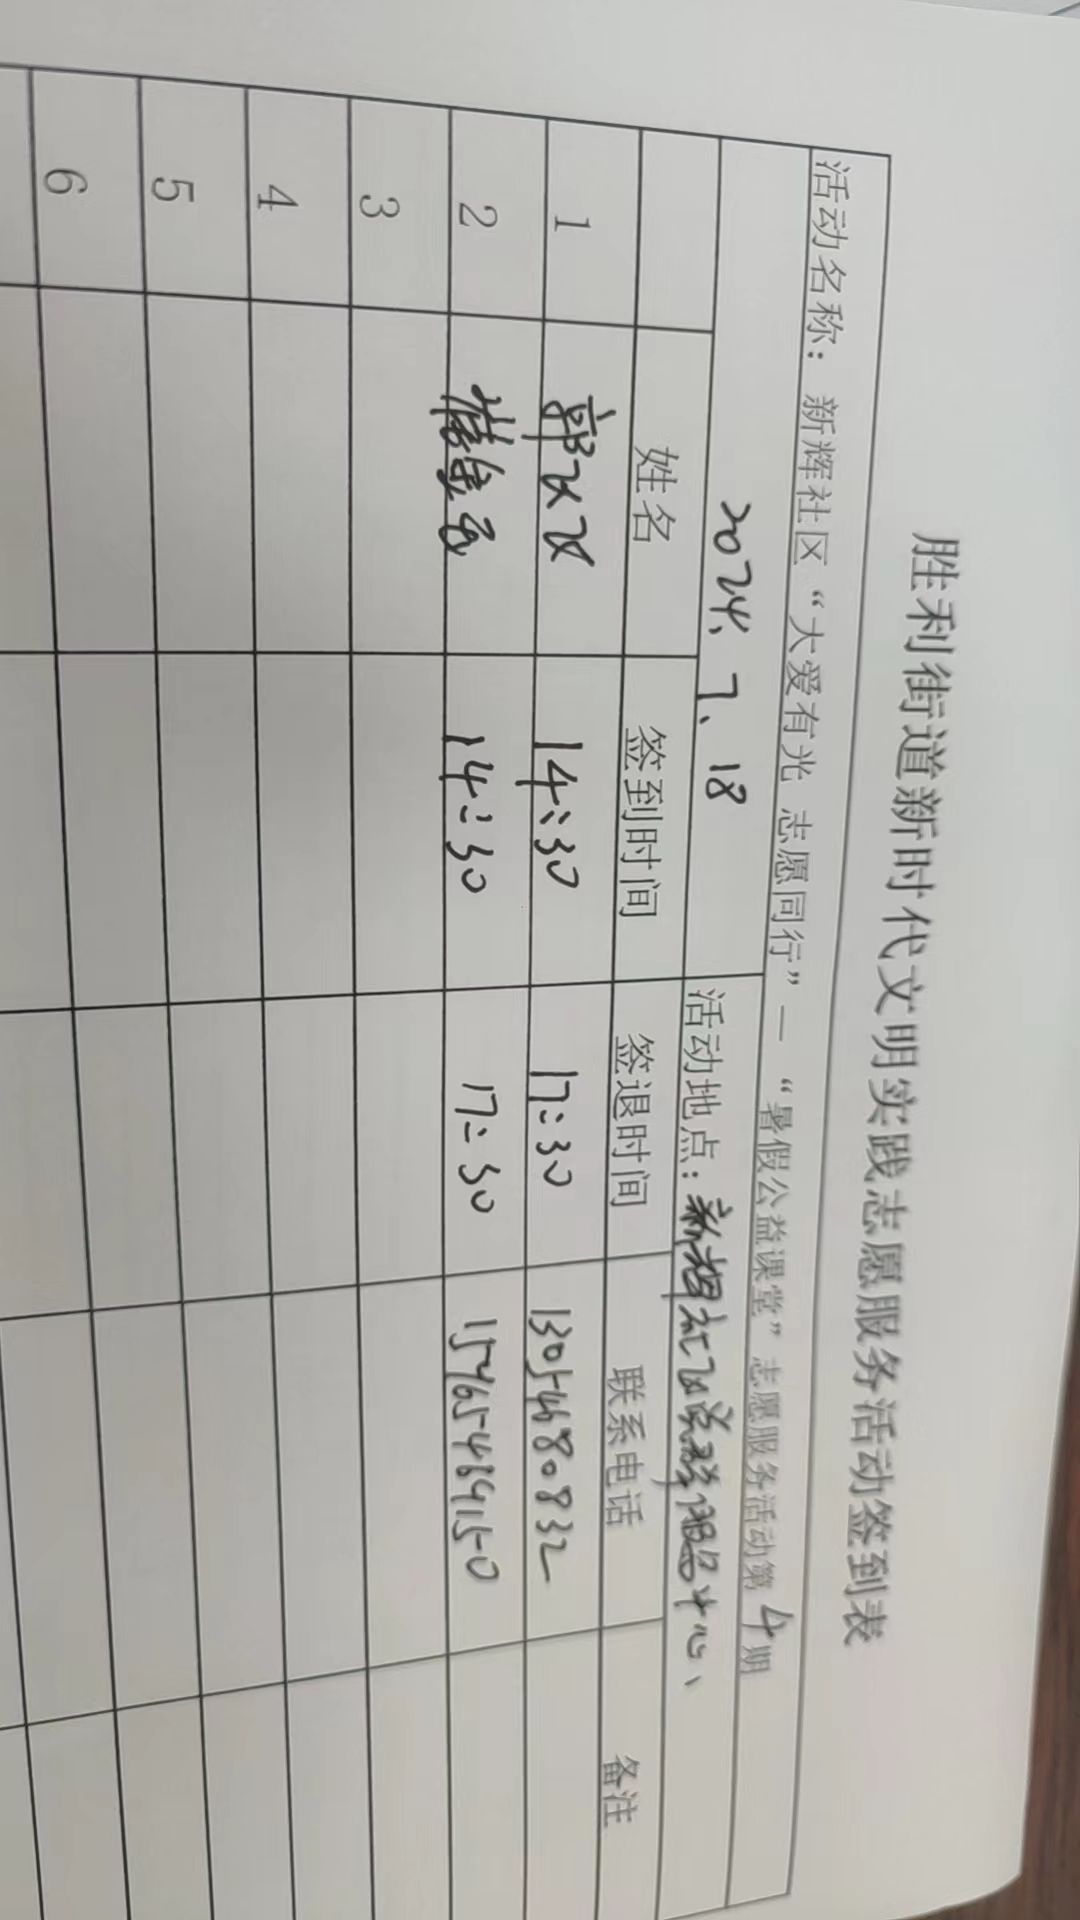 胜利街道新时代文明实践志愿服务活动签到表
活动名称：新辉社区“大爱有光 志愿同行”—“暑假公益课堂”志愿服务活动第4期
2024、7、18 活动地点：新辉社区党群服务中心、
姓名 签到时间 签退时间 联系电话 备注
1 郭 14:30 17:30
2 14:30 17:30
3
4
5
6